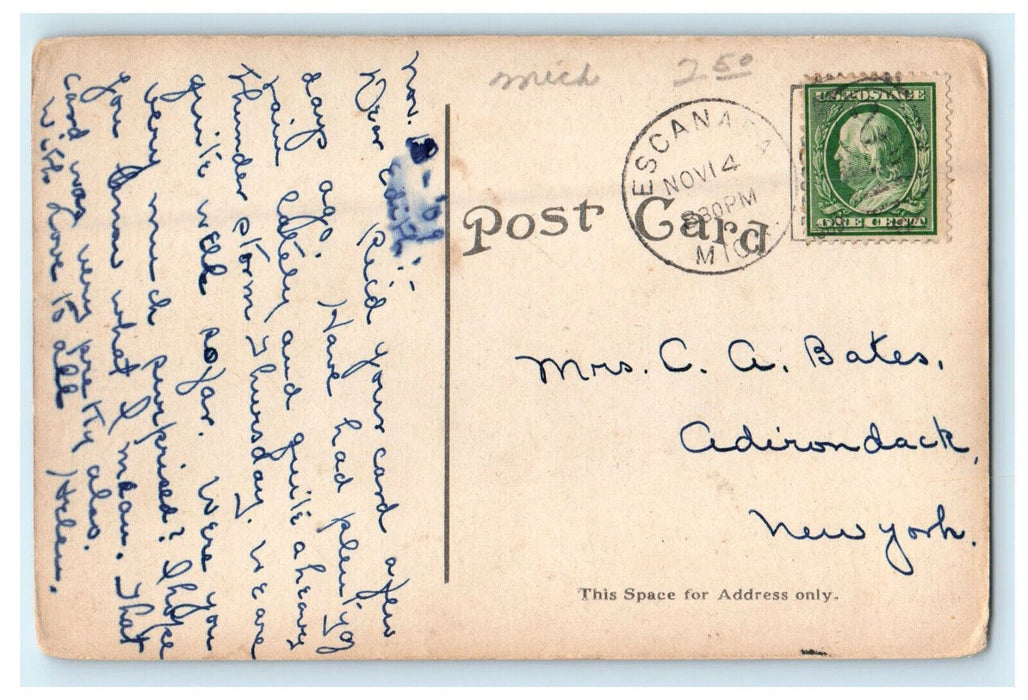 Mich 2 50
ESCANABA
NOV 14
830PM
MICH.
U.S. POSTAGE
ONE CENT
Post Card
Mrs. C. A. Bates,
Adirondack,
New York.
This Space for Address only.
Nov.
Dear Edith:-
Rec'd your card a few
days ago. Have had plenty of
rain lately and quite a heavy
thunder storm Thursday. We are
quite well so far. Were you
very much surprised? I hope
you know what I mean. That
card was very pretty also.
With love to all
Helen.